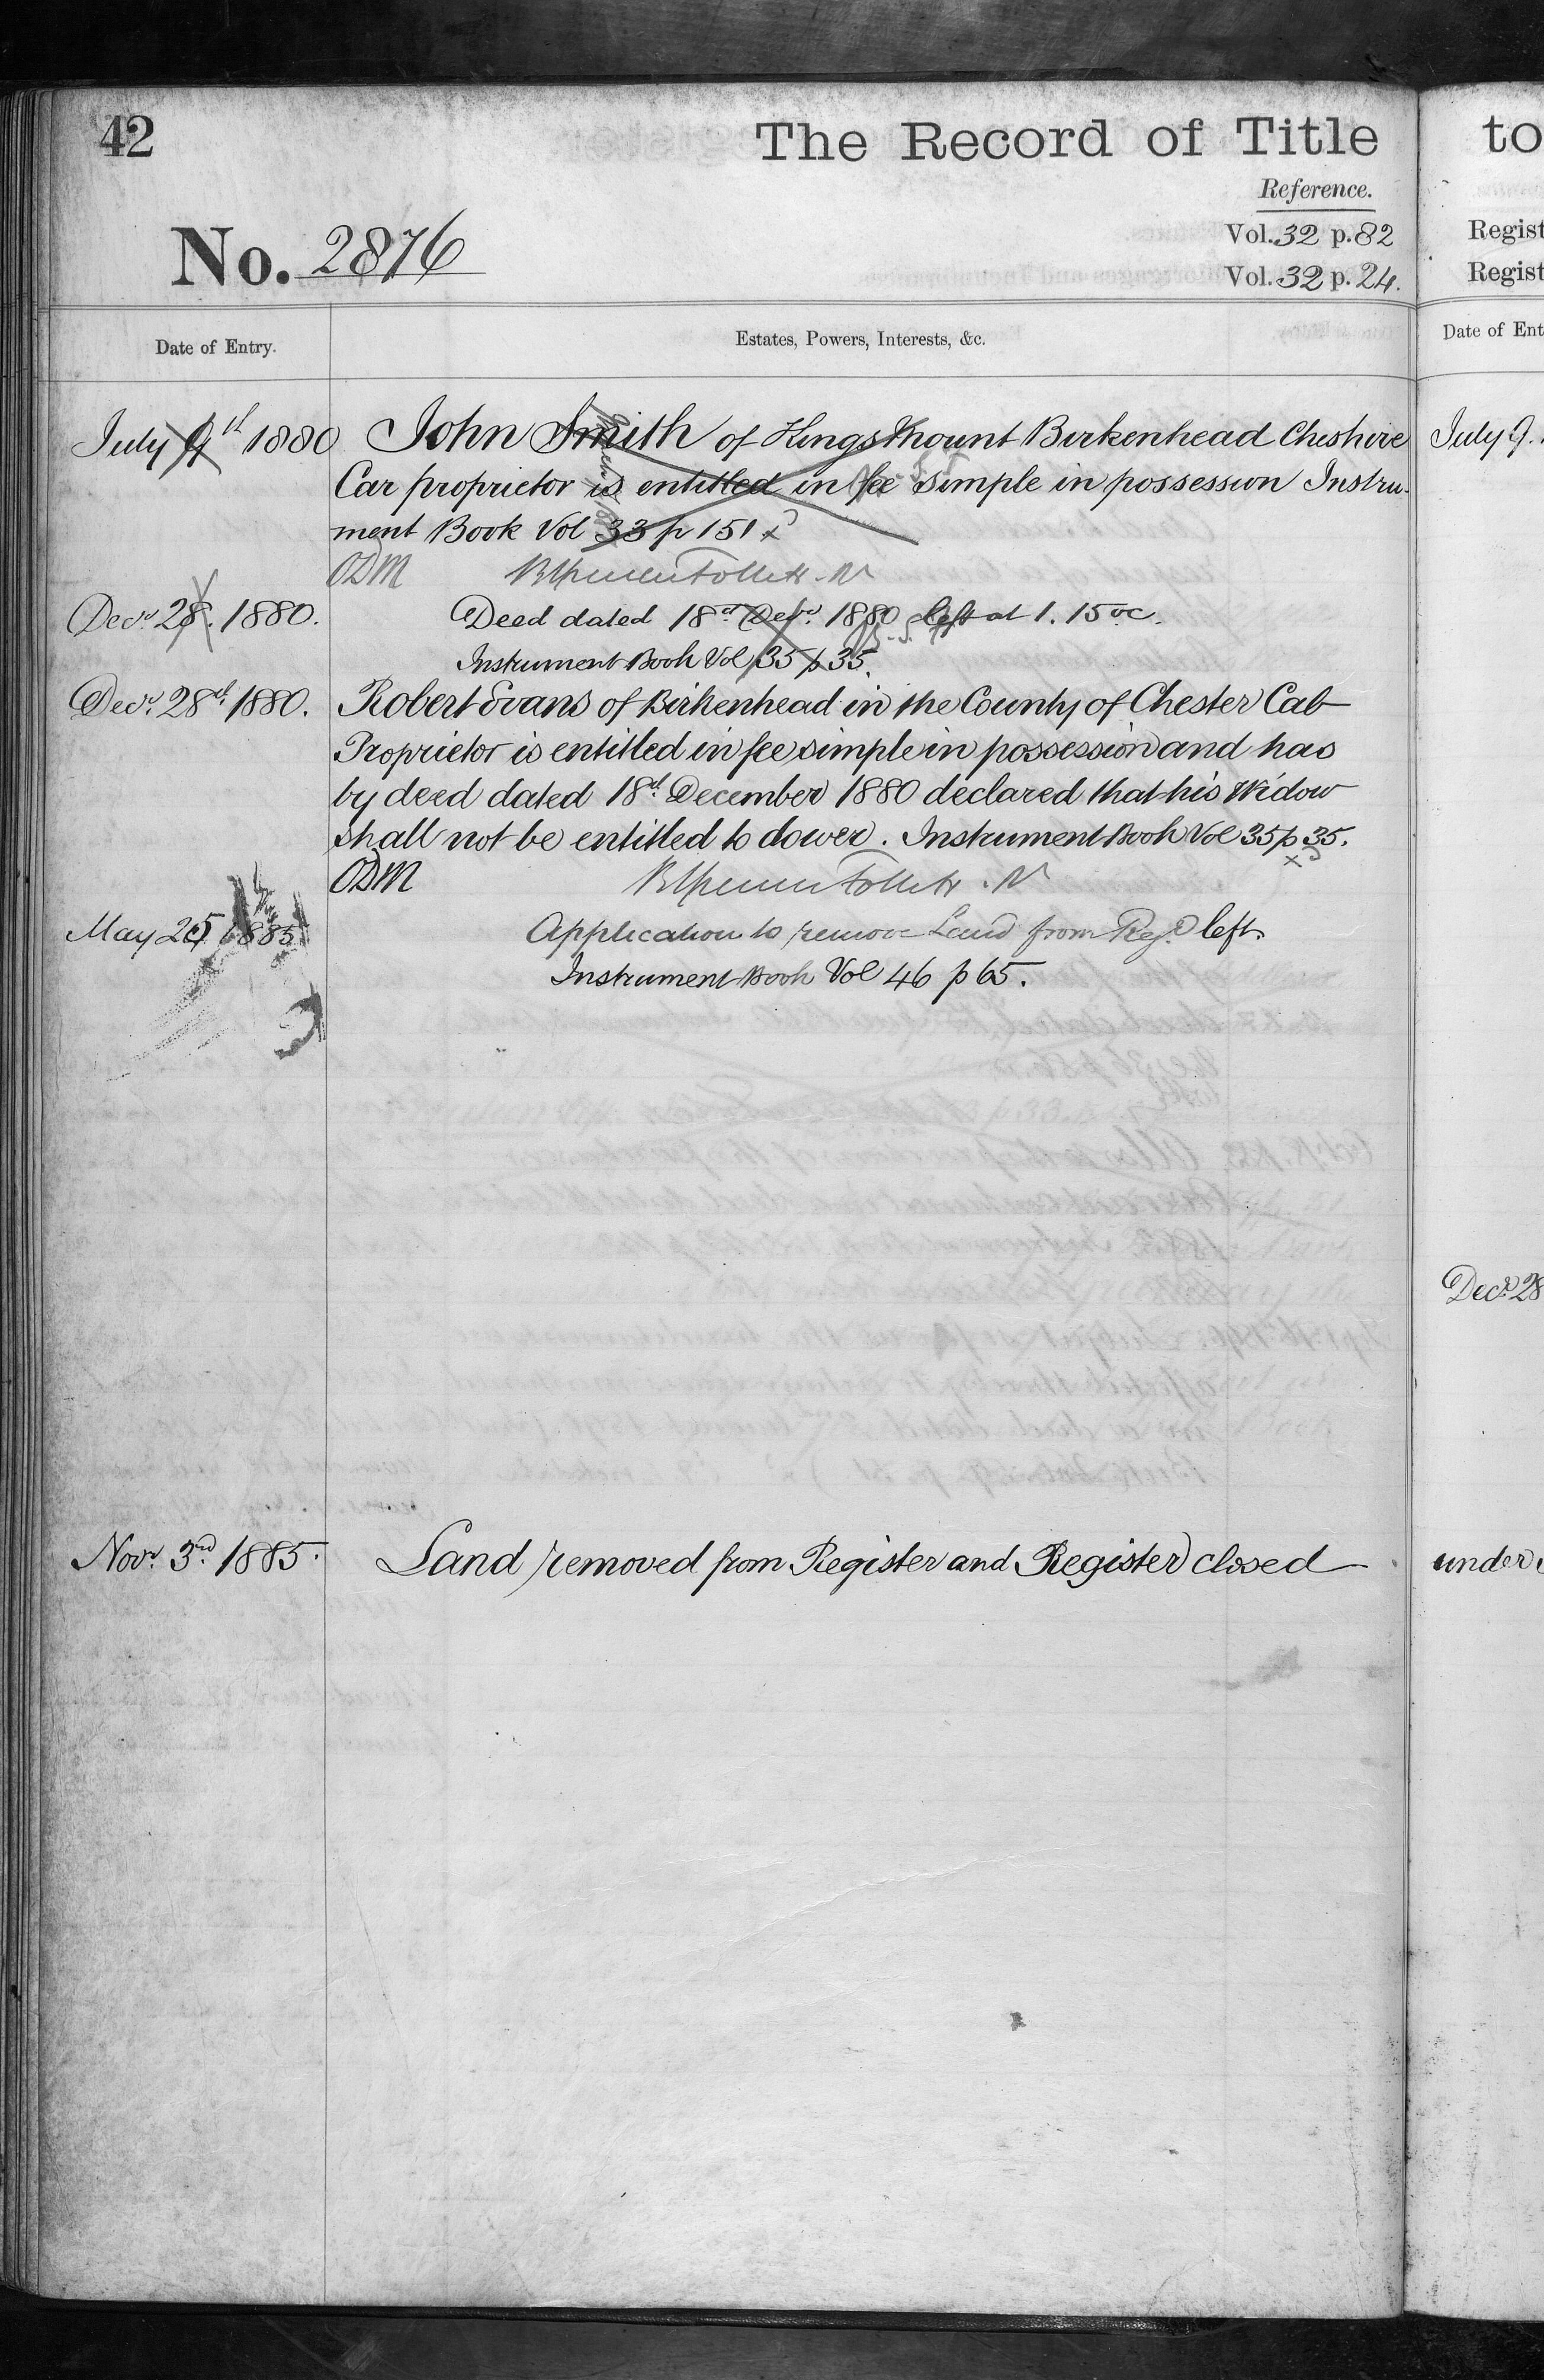 42
The Record of Title
Reference.
No. 2876
Vol. 32 p. 82
Vol. 32 p. 24.
Date of Entry.
Estates, Powers, Interests, &c.
July 9th 1880
John Smith of Kings Mount Birkenhead Cheshire
Car proprietor is entitled in fee simple in possession Instru-
ment Book Vol 33 p 151
ODM
Decr. 28. 1880.
Deed dated 18th Decr. 1880 left at 1. 15 oc.
Instrument Book Vol 35 p 35.
Decr. 28th 1880.
Robert Evans of Birkenhead in the County of Chester Cab
Proprietor is entitled in fee simple in possession and has
by deed dated 18th December 1880 declared that his Widow
shall not be entitled to dower. Instrument Book Vol 35 p 35.
ODM
May 25 1885
Application to remove Land from Regr left.
Instrument Book Vol 46 p 65.
Novr. 3rd 1885.
Land removed from Register and Register closed
to
Regist
Regist
Date of Ent
July 9.
Decr. 28
under